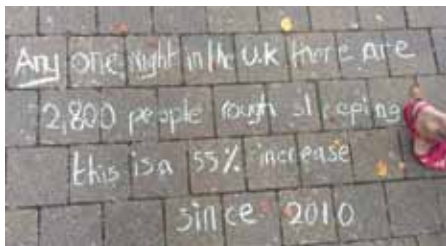 Any one night in the U.K there are
2,800 people rough sleeping
this is a 55% increase
since 2010